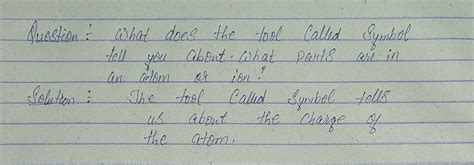 Question : What does the tool Called Symbol
tell you about. What parts are in
an atom or ion?
Solution : The tool Called Symbol tells
us about the charge of
the atom.